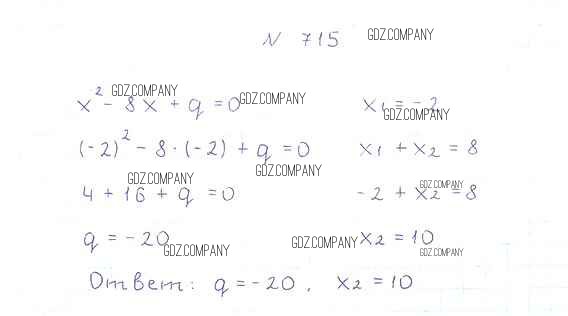 N 715 GDZ.COMPANY
GDZ.COMPANY
x² - 8x + q = 0 GDZ.COMPANY x₁ = -2
GDZ.COMPANY
(-2)² - 8 · (-2) + q = 0 x₁ + x₂ = 8
GDZ.COMPANY GDZ.COMPANY GDZ.COMPANY
4 + 16 + q = 0 -2 + x₂ = 8
q = -20 GDZ.COMPANY x₂ = 10
GDZ.COMPANY GDZ.COMPANY
Ответ: q = -20, x₂ = 10